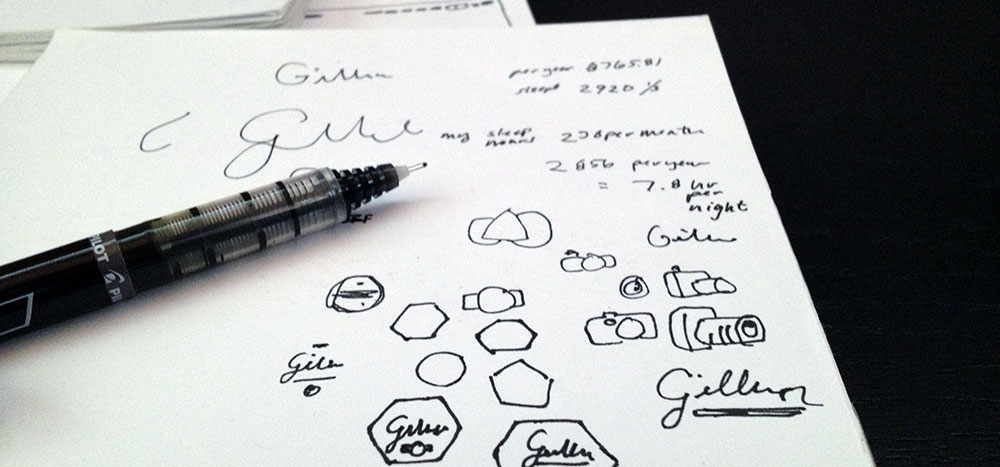 Gillen
per year 8765.81
sleep 2920 1/3
Gillen
my sleep hours 238 per month
2856 per year
= 7.8 hr per night
Gillen
PILOT
Gillen
Gillen
Gillen
Gillen